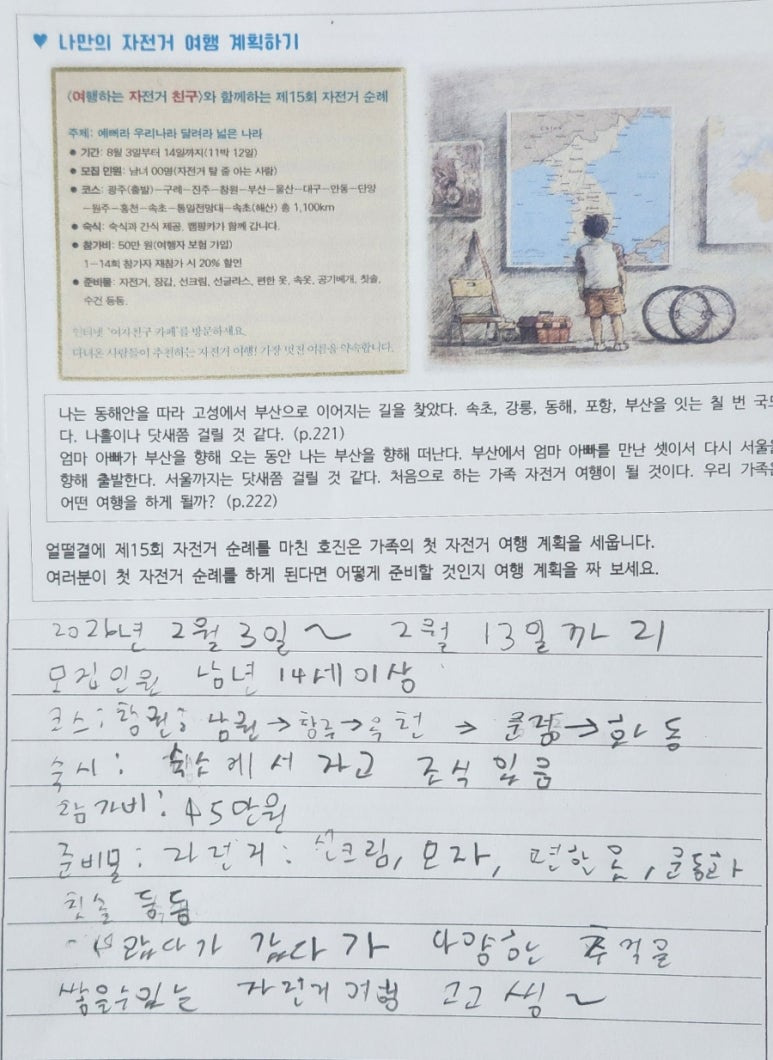 ♥ 나만의 자전거 여행 계획하기
〈여행하는 자전거 친구〉와 함께하는 제15회 자전거 순례
주제: 예뻐라 우리나라 달려라 넓은 나라
● 기간: 8월 3일부터 14일까지(11박 12일)
● 모집 인원: 남녀 00명(자전거 탈 줄 아는 사람)
● 코스: 광주(출발)－구례－진주－창원－부산－울산－대구－안동－단양
－원주－홍천－속초－통일전망대－속초(해산) 총 1,100km
● 숙식: 숙식과 간식 제공. 캠핑카가 함께 갑니다.
● 참가비: 50만 원(여행자 보험 가입)
1－14회 참가자 재참가 시 20% 할인
● 준비물: 자전거, 장갑, 선크림, 선글라스, 편한 옷, 속옷, 공기베개, 칫솔,
수건 등등.
인터넷 '여자친구 카페'를 방문하세요.
다녀온 사람들이 추천하는 자전거 여행! 가장 멋진 여름을 약속합니다.
China
나는 동해안을 따라 고성에서 부산으로 이어지는 길을 찾았다. 속초, 강릉, 동해, 포항, 부산을 잇는 칠 번 국도
다. 나흘이나 닷새쯤 걸릴 것 같다. (p.221)
엄마 아빠가 부산을 향해 오는 동안 나는 부산을 향해 떠난다. 부산에서 엄마 아빠를 만난 셋이서 다시 서울을
향해 출발한다. 서울까지는 닷새쯤 걸릴 것 같다. 처음으로 하는 가족 자전거 여행이 될 것이다. 우리 가족은
어떤 여행을 하게 될까? (p.222)
얼떨결에 제15회 자전거 순례를 마친 호진은 가족의 첫 자전거 여행 계획을 세웁니다.
여러분이 첫 자전거 순례를 하게 된다면 어떻게 준비할 것인지 여행 계획을 짜 보세요.
2026년 2월 3일 ~ 2월 13일 까지
모집인원 남년 14세 이상
코스: 남원 → → 옥천 → →
숙시: 에서 자고 조식 있음
참가비: 45만원
준비물: 자전거: 선크림, 모자, 편한 옷, 운동화
칫솔 등등
다양한 추억을
쌓을수있는 자전거 여행 고고 씽~